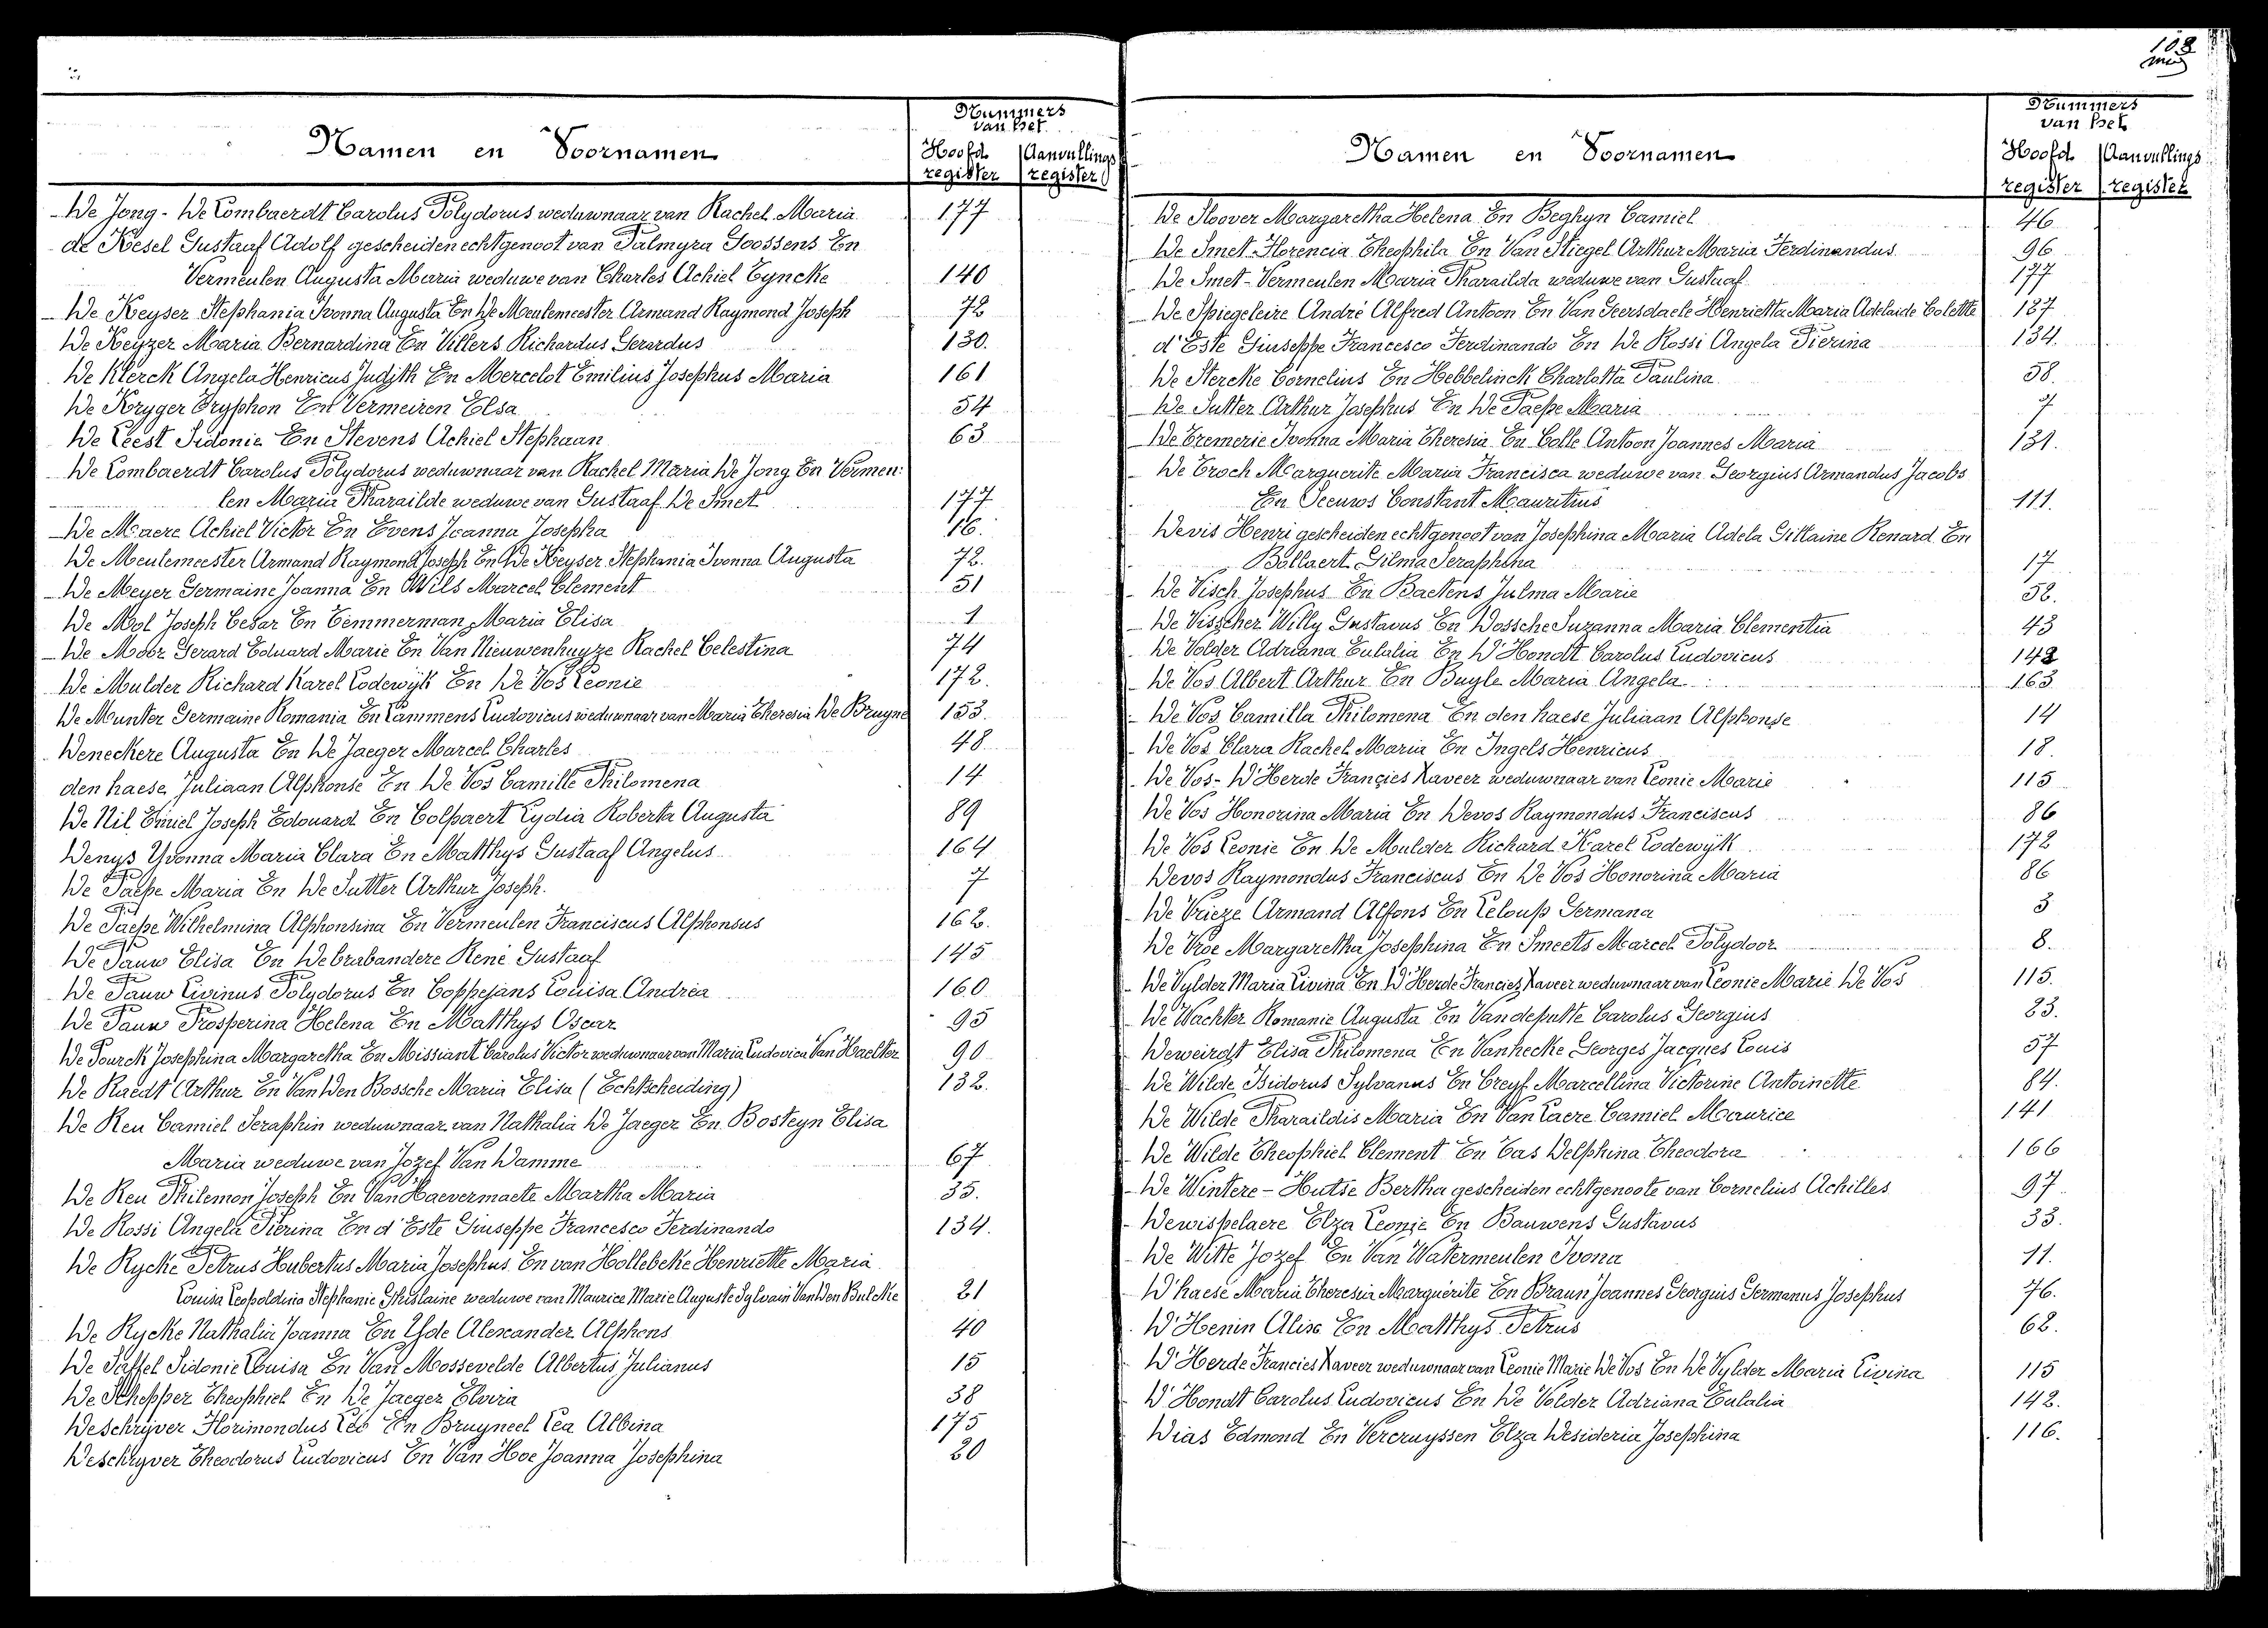 108
Nummers
van het
Namen en Voornamen
Hoofd Aanvullings
register register
De Jong - De Lombaerdt Carolus Polydorus weduwnaar van Rachel Maria 177
de Kesel Gustaaf Adolf gescheiden echtgenoot van Palmyra Goossens En
Vermeulen Augusta Maria weduwe van Charles Achiel Eyncke 140
De Keyser Stephania Ivonna Augusta En De Meulemeester Armand Raymond Joseph 72
De Keyzer Maria Bernardina En Villers Richardus Gerardus 130.
De Klerck Angela Henricus Judith En Mercelot Emilius Josephus Maria 161
De Kryger Tryphon En Vermeiren Elsa 54
De Leest Sidonie En Stevens Achiel Stephaan 63
De Lombaerdt Carolus Polydorus weduwnaar van Rachel Maria De Jong En Vermeu:
len Maria Pharailde weduwe van Gustaaf De Smet 177
De Maere Achiel Victor En Evens Joanna Josepha 16.
De Meulemeester Armand Raymond Joseph En De Keyser Stephania Ivonna Augusta 72.
De Meyer Germaine Joanna En Wils Marcel Clement 51
De Mol Joseph Cesar En Temmerman Maria Elisa 1
De Moor Gerard Eduard Marie En Van Nieuwenhuyze Rachel Celestina 74
De Mulder Richard Karel Lodewijk En De Vos Leonie 172.
De Munter Germaine Romania En Lammens Ludovicus weduwnaar van Maria Theresia De Bruyne 153.
Deneckere Augusta En De Jaeger Marcel Charles 48
den haese Juliaan Alphonse En De Vos Camille Philomena 14
De Nil Emiel Joseph Edouard En Colpaert Lydia Roberta Augusta 89
Denys Yvonna Maria Clara En Matthys Gustaaf Angelus 164
De Paepe Maria En De Sutter Arthur Joseph. 7
De Paepe Wilhelmina Alphonsina En Vermeulen Franciscus Alphonsus 162.
De Pauw Elisa En De brabandere René Gustaaf 145
De Pauw Livinus Polydorus En Coppejans Louisa Andréa 160
De Pauw Prosperina Helena En Matthys Oscar 95
De Pourck Josephina Margaretha En Missiant Carolus Victor weduwnaar van Maria Ludovica Van Haelter 90
De Raedt Arthur En Van Den Bossche Maria Elisa (Echtscheiding) 132.
De Reu Camiel Seraphin weduwnaar van Nathalia De Jaeger En Bosteyn Elisa
Maria weduwe van Jozef Van Damme 67
De Reu Philemon Joseph En Van Haevermaete Martha Maria 35.
De Rossi Angela Pierina En d'Este Giuseppe Francesco Ferdinando 134.
De Rycke Petrus Hubertus Maria Josephus En van Hollebeke Henriette Maria
Louisa Leopoldina Stephanie Ghislaine weduwe van Maurice Marie Auguste Sylvain Van Den Bulcke 21
De Rycke Nathalia Joanna En Yde Alexander Alphons 40
De Saffel Sidonie Louisa En Van Mossevelde Albertus Julianus 15
De Schepper Theophiel En De Jaeger Elvira 38
Deschryver Florimondus Leo En Bruyneel Lea Albina 175
Deschryver Theodorus Ludovicus En Van Hoe Joanna Josephina 20
Nummers
van het
Namen en Voornamen
Hoofd Aanvullings
register register
De Sloover Margaretha Helena En Beghyn Camiel 46
De Smet Florencia Theophila En Van Stiegel Arthur Maria Ferdinandus 96
De Smet - Vermeulen Maria Pharailda weduwe van Gustaaf 177
De Spiegeleire André Alfred Antoon En Van Geersdaele Henrietta Maria Adelaide Colette 137
d'Este Giuseppe Francesco Ferdinando En De Rossi Angela Pierina 134.
De Stercke Cornelius En Hebbelinck Charlotta Paulina 58.
De Sutter Arthur Josephus En De Paepe Maria 7
De Tremerie Ivonna Maria Theresia En Colle Antoon Joannes Maria 131.
De Troch Marguerite Maria Francisca weduwe van Georgius Armandus Jacobs
En Seeuws Constant Mauritius 111.
Devis Henri gescheiden echtgenoot van Josephina Maria Adela Gillaine Renard En
Bollaert Gilma Seraphina 17
De Visch Josephus En Baetens Julma Marie 52.
De Visscher Willy Gustavus En Dossche Suzanna Maria Clementia 43
De Volder Adriana Eulalia En D'Hondt Carolus Ludovicus 142
De Vos Albert Arthur En Buyle Maria Angela 163
De Vos Camilla Philomena En den haese Juliaan Alphonse 14
De Vos Clara Rachel Maria En Ingels Henricus 18
De Vos - D'Herde Francies Xaveer weduwnaar van Leonie Marie 115
De Vos Honorina Maria En Devos Raymondus Franciscus 86
De Vos Leonie En De Mulder Richard Karel Lodewijk 172
Devos Raymondus Franciscus En De Vos Honorina Maria 86
De Vrieze Armand Alfons En Leloup Germana 3
De Vroe Margaretha Josephina En Smeets Marcel Polydoor 8.
De Vylder Maria Livina En D'Herde Francies Xaveer weduwnaar van Leonie Marie De Vos 115.
De Wachter Romanie Augusta En Vandeputte Carolus Georgius 23.
Deweirdt Elisa Philomena En Vanhecke Georges Jacques Louis 57
De Wilde Isidorus Sylvanus En Creyf Marcellina Victorine Antoinette 84.
De Wilde Pharaildis Maria En Van Laere Camiel Maurice 141
De Wilde Theophiel Clement En Cas Delphina Theodora 166
De Wintere - Hutse Bertha gescheiden echtgenoote van Cornelius Achilles 97
Dewispelaere Elza Leonie En Bauwens Gustavus 33.
De Witte Jozef En Van Watermeulen Ivona 11.
D'haese Maria Theresia Marguérite En Braun Joannes Georgius Germanus Josephus 76.
D'Henin Alise En Matthys Petrus 62.
D'Herde Francies Xaveer weduwnaar van Leonie Marie De Vos En De Vylder Maria Livina 115
D'Hondt Carolus Ludovicus En De Volder Adriana Eulalia 142.
Dias Edmond En Vercruyssen Elza Desideria Josephina 116.